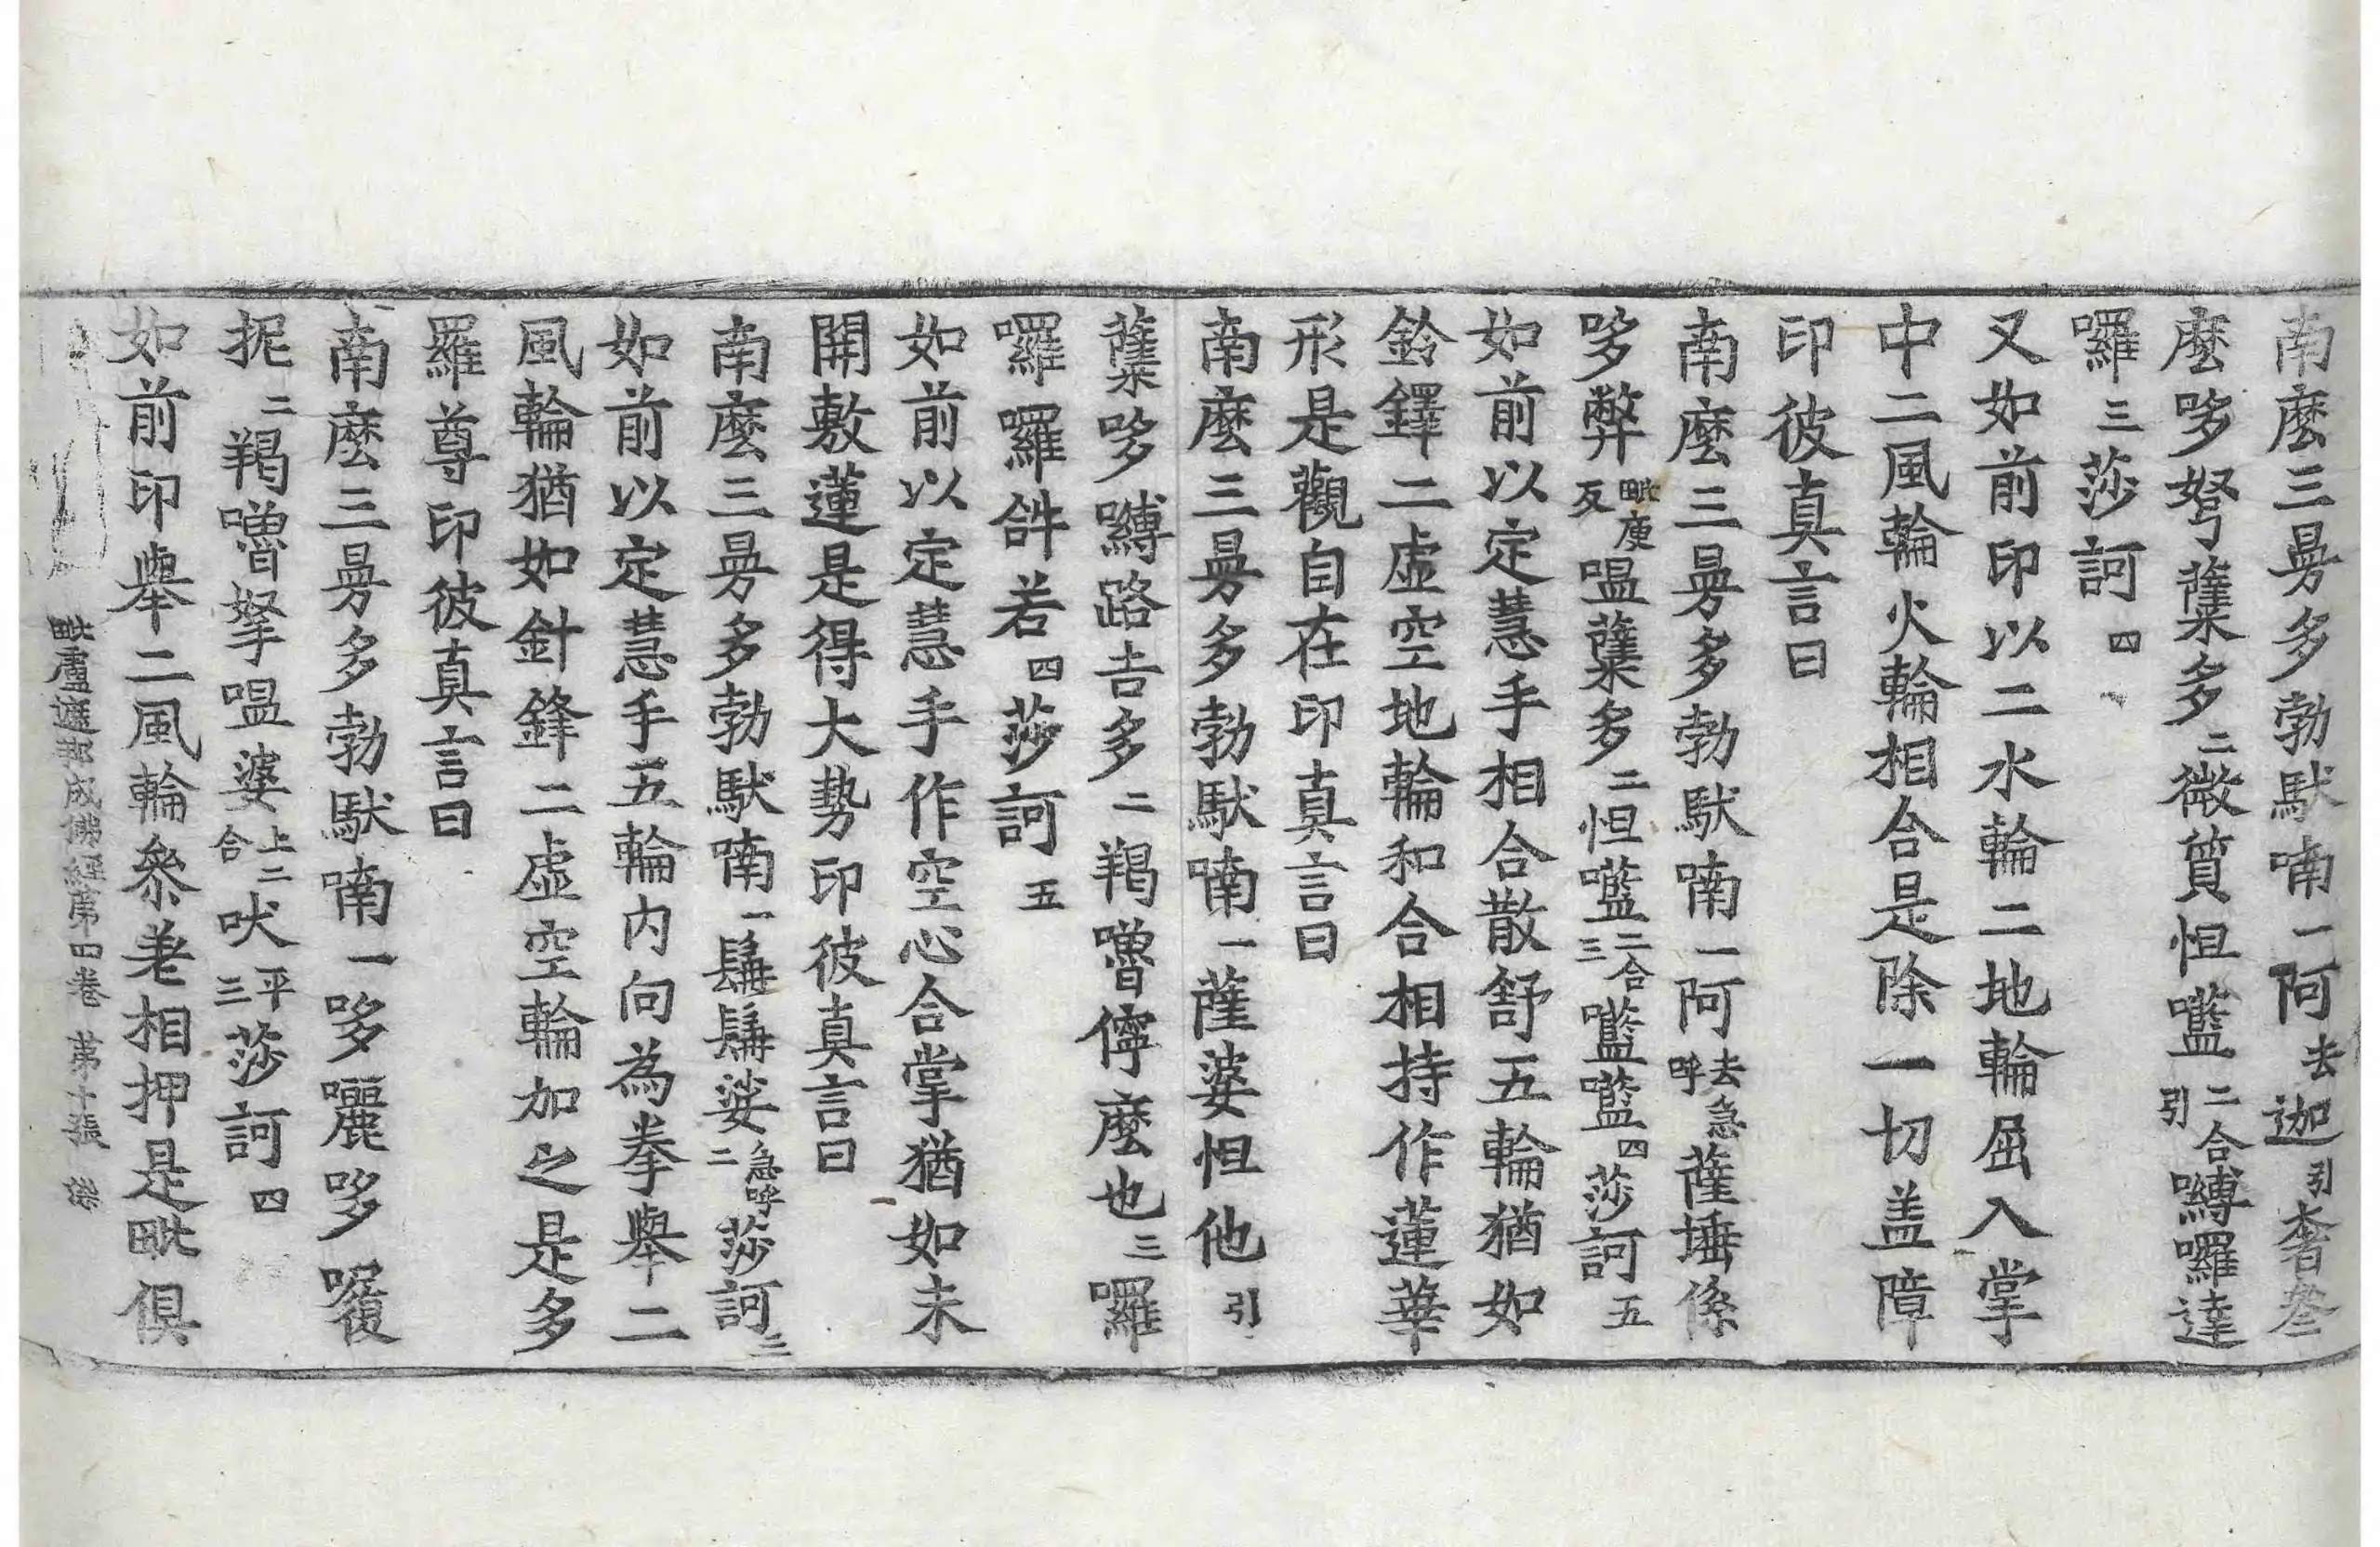 南麼三曼多勃馱喃一阿去迦引奢參
麼哆弩蘖多二微質怛囕二合引嚩囉達
囉三莎訶四
又如前印以二水輪二地輪屈入掌
中二風輪火輪相合是除一切盖障
印彼真言曰
南麼三曼多勃馱喃一阿去急呼薩埵係
哆弊毗庾反嗢蘖多二怛囕二合三囕囕四莎訶五
如前以定慧手相合散舒五輪猶如
鈴鐸二虛空地輪和合相持作蓮華
形是觀自在印真言曰
南麼三曼多勃馱喃一薩婆怛他引
蘖哆嚩路吉多二羯嚕儜麼也三囉
囉囉𤙖若四莎訶五
如前以定慧手作空心合掌猶如未
開敷蓮是得大勢印彼真言曰
南麼三曼多勃馱喃一髯髯娑急呼二莎訶三
如前以定慧手五輪內向為拳舉二
風輪猶如針鋒二虛空輪加之是多
羅尊印彼真言曰
南麼三曼多勃馱喃一哆囇哆囇
抳二羯嚕拏嗢婆上二合吠平三莎訶四
如前印舉二風輪參差相押是毗俱
毗盧遮那成佛經第四卷 第十張